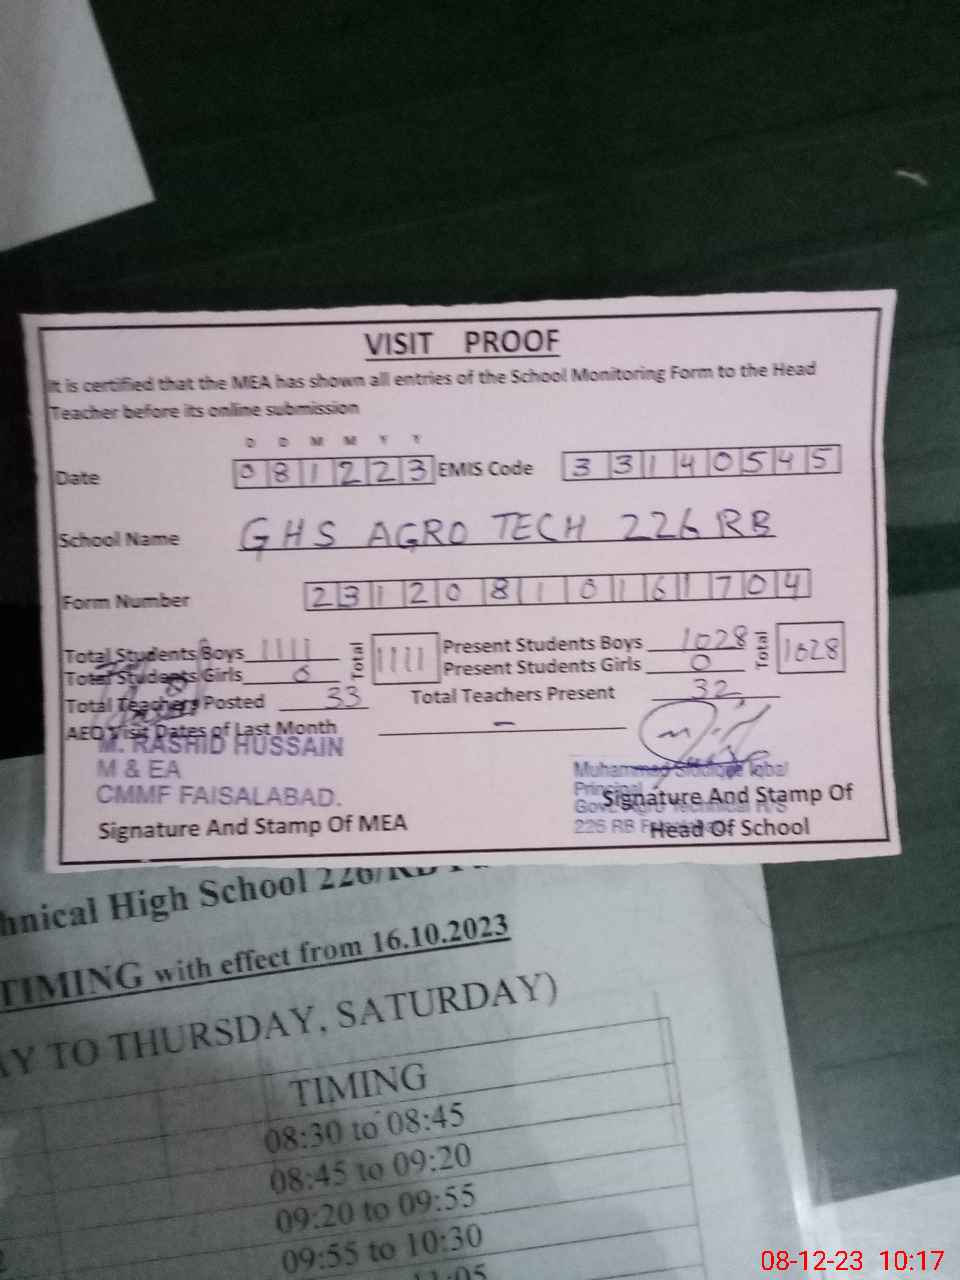 VISIT PROOF
It is certified that the MEA has shown all entries of the School Monitoring Form to the Head
Teacher before its online submission
D D M M Y Y
Date 081223 EMIS Code 33140545
School Name GHS AGRO TECH 226 RB
Form Number 23120810161704
Total Students Boys 1111 Total 1111 Present Students Boys 1028 Total 1028
Total Students Girls 0 Present Students Girls 0
Total Teachers Posted 33 Total Teachers Present 32
AEO Visit Dates of Last Month -
M. RASHID HUSSAIN
M & EA
CMMF FAISALABAD.
Signature And Stamp Of MEA
Muhammad Siddique Iqbal
Principal
Signature And Stamp Of
226 RB
Head Of School
hnical High School 226/RB
TIMING with effect from 16.10.2023
AY TO THURSDAY, SATURDAY)
TIMING
08:30 to 08:45
08:45 to 09:20
09:20 to 09:55
09:55 to 10:30
11:05
08-12-23 10:17